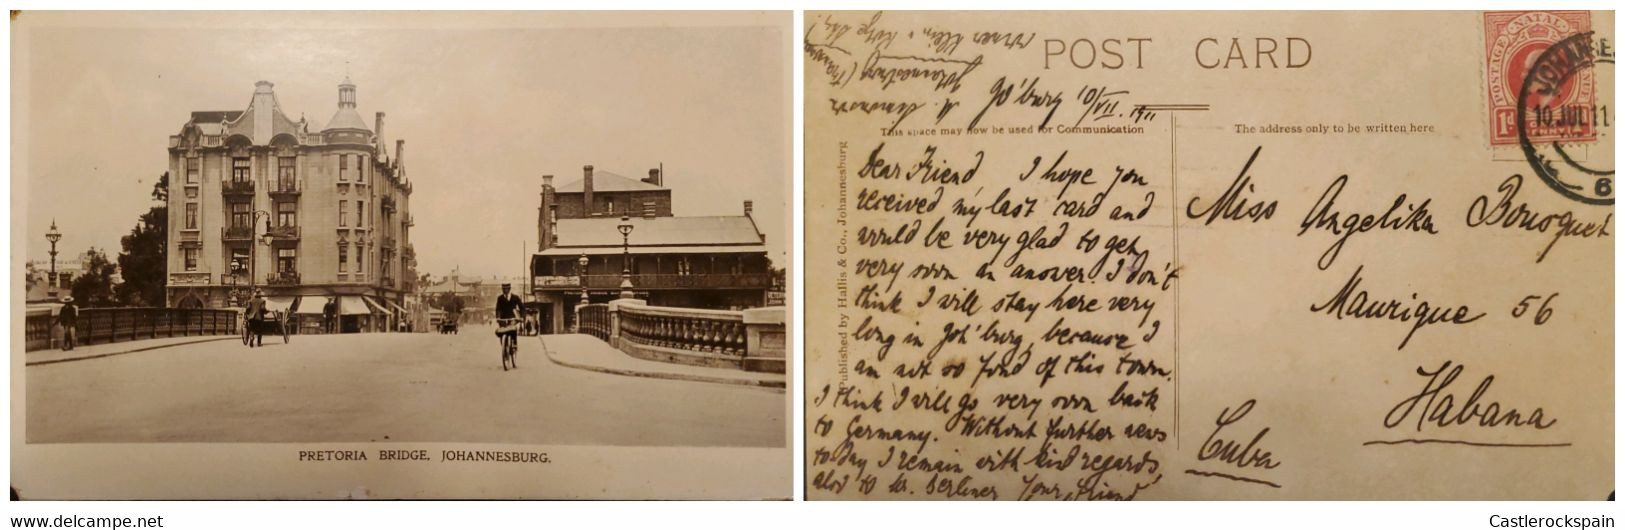 PRETORIA BRIDGE, JOHANNESBURG.
POST CARD
Jo'burg 10/VII. 1911
This space may now be used for Communication
The address only to be written here
Published by Hallis & Co., Johannesburg
Dear Friend I hope you
received my last card and
would be very glad to get
very soon an answer. I don't
think I will stay here very
long in Joh'burg, because I
am not so fond of this town.
I think I will go very soon back
to Germany. Without further news
to day I remain with kind regards,
also to Mr. Berliner Your friend
Johannesburg
POSTAGE NATAL REVENUE
1d
JOHANNES
10 JUL 11
6
Miss Angelika Bousquet
Manrique 56
Habana
Cuba
www.delcampe.net
Castlerockspain